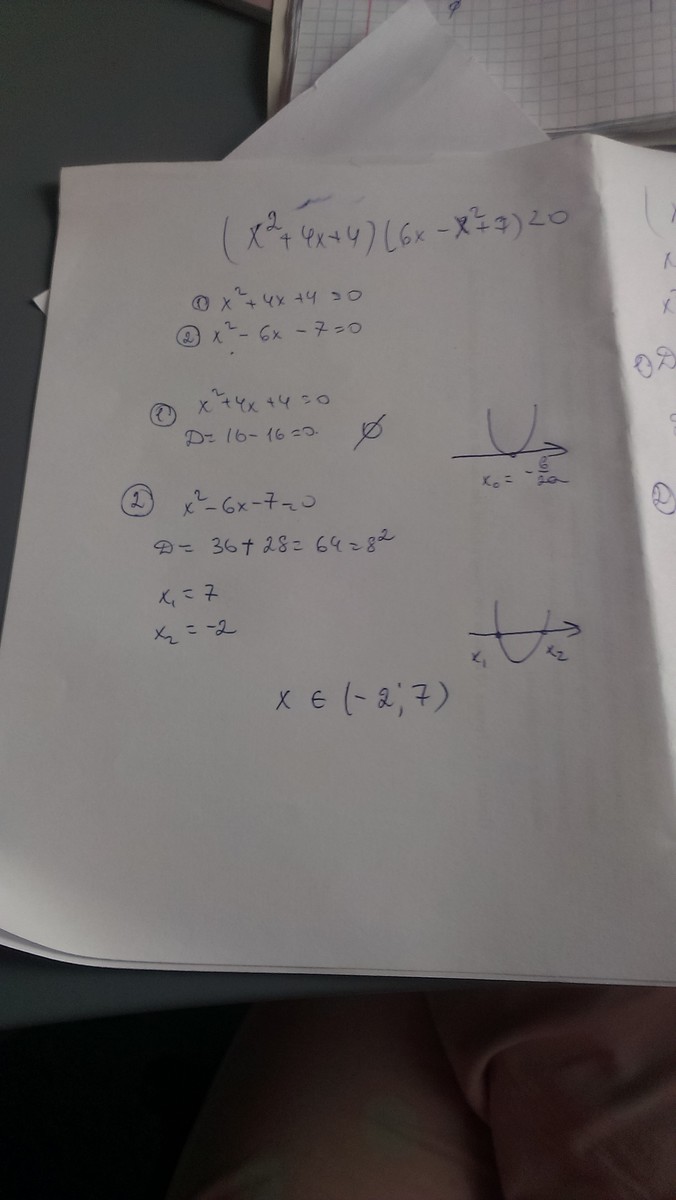 (x²+4x+4)(6x-x²+7)≥0
① x²+4x+4=0
② x²-6x-7=0
① x²+4x+4=0
D=16-16=0. ∅
x₀=-b/2a
② x²-6x-7=0
D= 36+28=64=8²
x₁=7
x₂=-2
x₁ x₂
x ∈ (-2;7)
① D
②